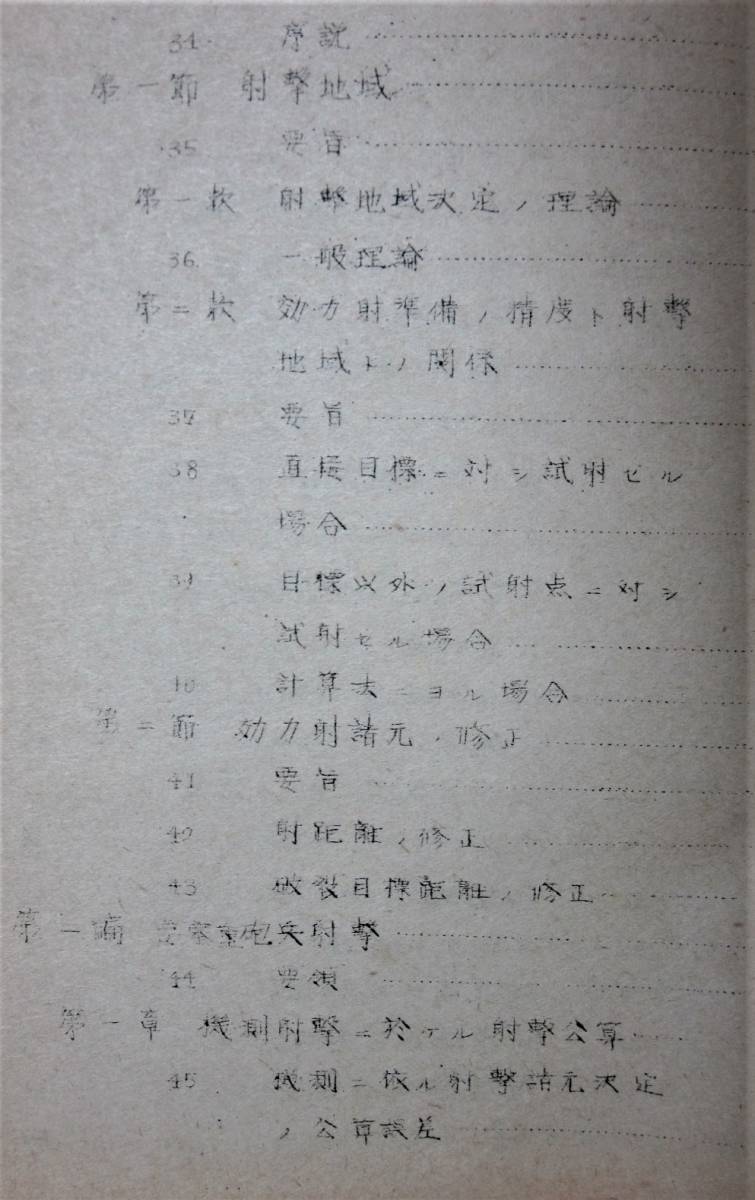 34 序説
第一節 射撃地域
35 要旨
第一款 射撃地域決定ノ理論
36 一般理論
第二款 効力射準備ノ精度ト射撃
地域トノ関係
37 要旨
38 直接目標ニ対シ試射セル
場合
39 目標以外ノ試射点ニ対シ
試射セル場合
40 計算法ニヨル場合
第二節 効力射諸元ノ修正
41 要旨
42 射距離ノ修正
43 破裂目標距離ノ修正
第 編 要塞重砲兵射撃
44 要領
第一章 機測射撃ニ於ケル射撃公算
45 機測ニ依ル射撃諸元決定
ノ公算誤差